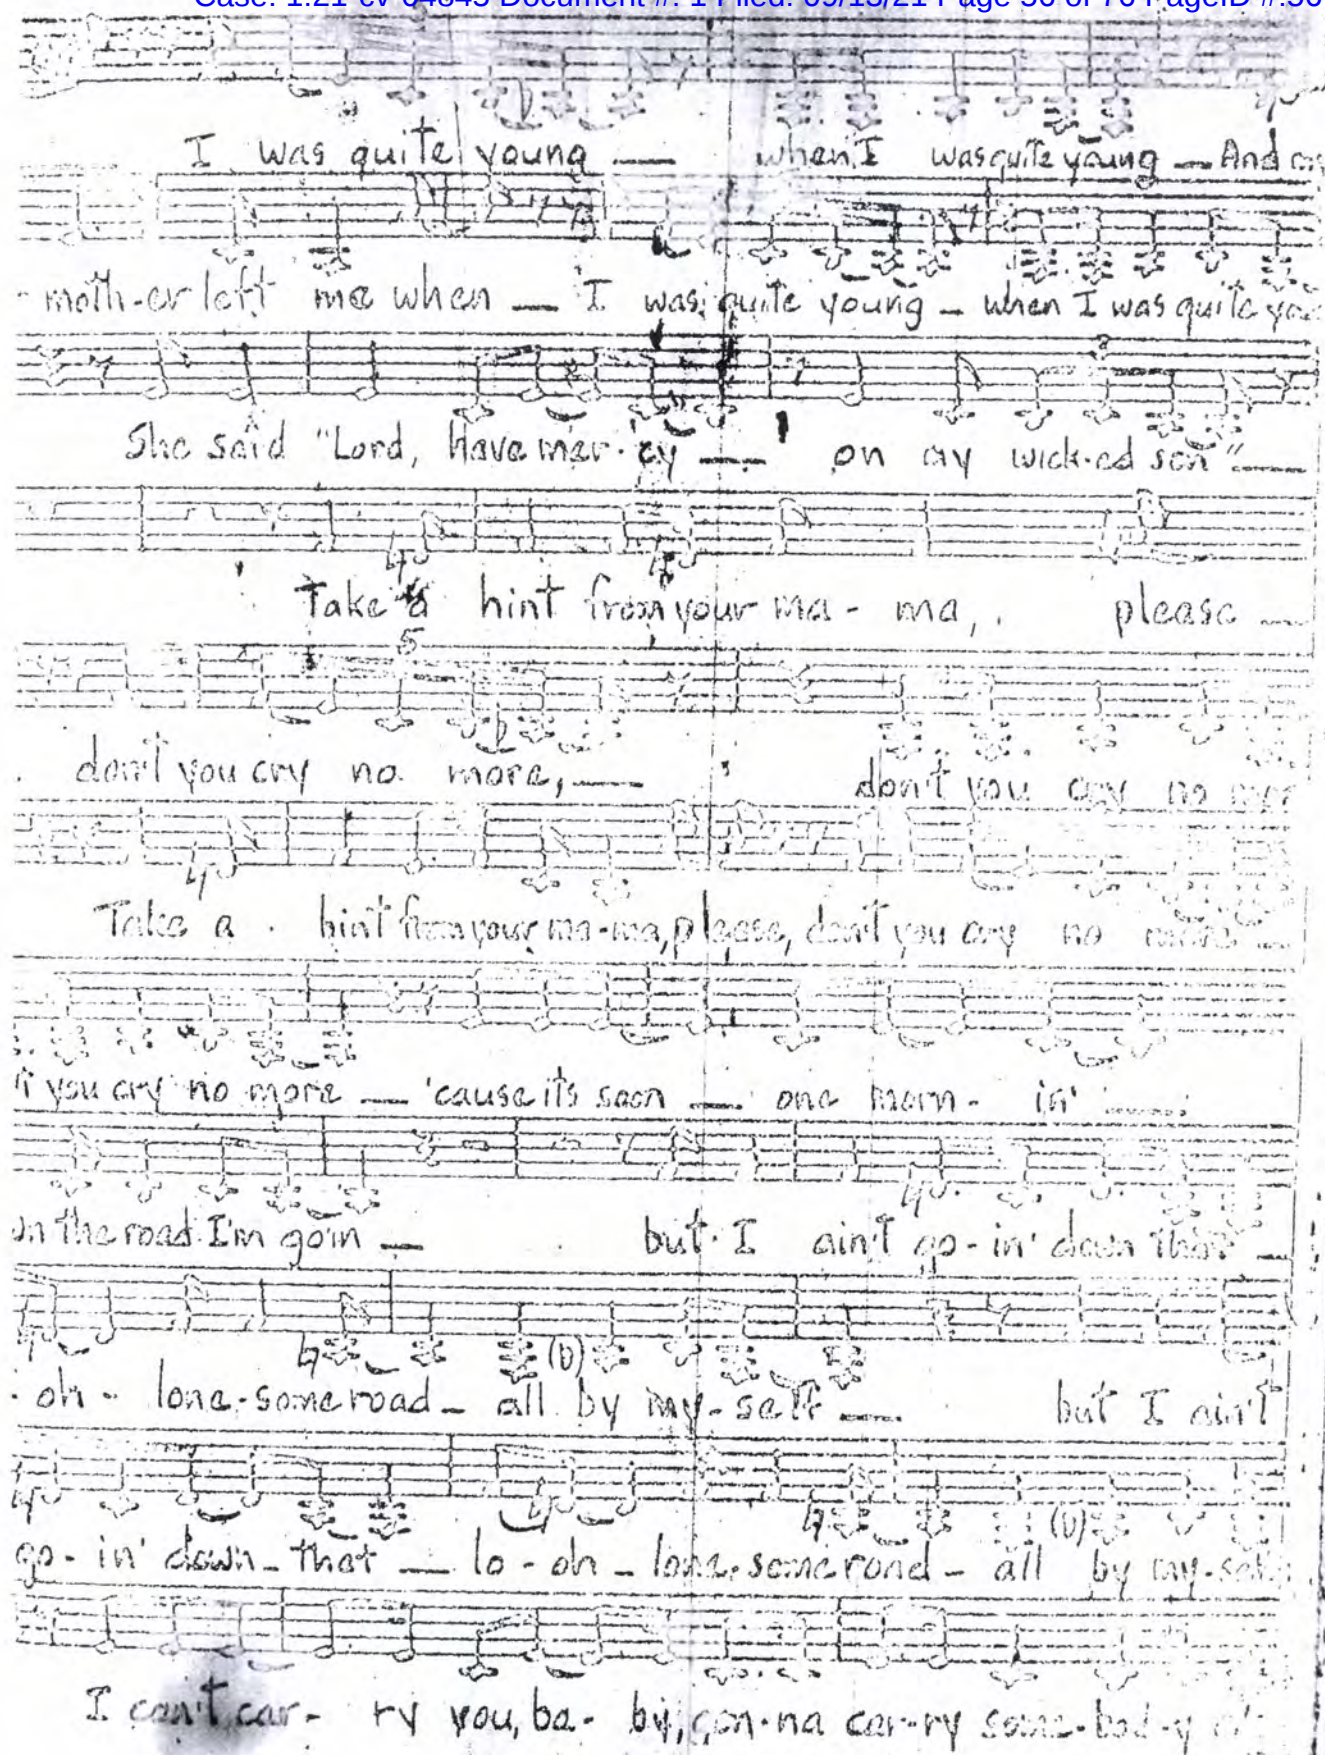 Case: 1:21-cv-04845 Document #: 1 Filed: 09/13/21 Page 56 of 76 PageID #:56
I was quite young — when I was quite young — And my
- moth-er left me when — I was quite young — when I was quite
She said "Lord, have mer-cy — on my wick-ed son" —
Take a hint from your ma- ma, please —
5
don't you cry no more, — don't you cry no more
Take a hint from your ma-ma, please, don't you cry no more —
you cry no more — 'cause its soon — one morn- in'
the road I'm goin — but I ain't go-in' down that —
(b)
- oh - lone-some road - all by my-self — but I ain't
(b)
go- in' down - that — lo - oh - lone-some road - all by my-self
I can't car- ry you, ba- by, gon-na car-ry some-bod-y